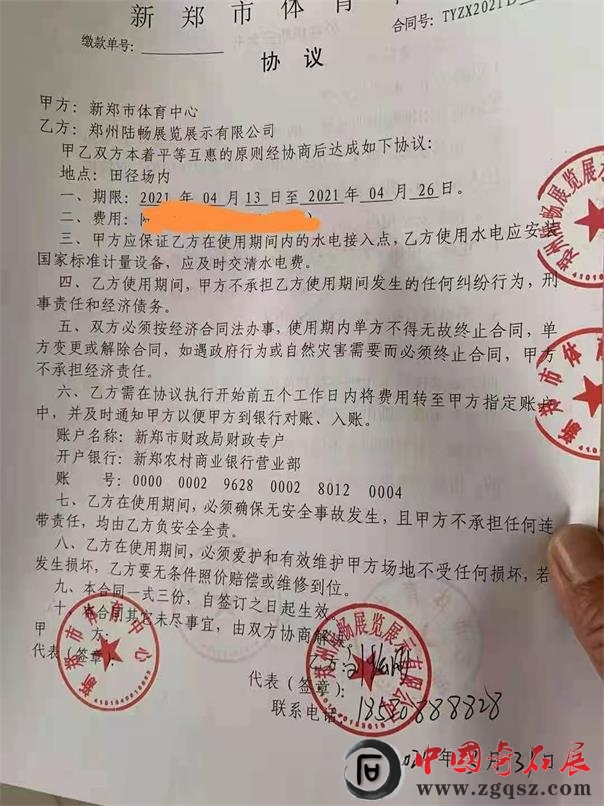 新 郑 市 体 育
合同号：TYZX2021
缴款单号：
协 议
甲方：新郑市体育中心
乙方：郑州陆畅展览展示有限公司
甲乙双方本着平等互惠的原则经协商后达成如下协议：
地点：田径场内
一、期限：2021 年 04 月 13 日至 2021 年 04 月 26 日。
二、费用：
三、甲方应保证乙方在使用期间内的水电接入点，乙方使用水电应安装
国家标准计量设备，应及时交清水电费。
四、乙方使用期间，甲方不承担乙方使用期间发生的任何纠纷行为，刑
事责任和经济债务。
五、双方必须按经济合同法办事，使用期内单方不得无故终止合同，单
方变更或解除合同，如遇政府行为或自然灾害需要而必须终止合同，甲方
不承担经济责任。
六、乙方需在协议执行开始前五个工作日内将费用转至甲方指定账户
中，并及时通知甲方以便甲方到银行对账、入账。
账户名称：新郑市财政局财政专户
开户银行：新郑农村商业银行营业部
账 号：0000 0002 9628 0002 8012 0004
七、乙方在使用期间，必须确保无安全事故发生，且甲方不承担任何连
带责任，均由乙方负安全全责。
八、乙方在使用期间，必须爱护和有效维护甲方场地不受任何损坏，若
发生损坏，乙方要无条件照价赔偿或维修到位。
九、本合同一式三份，自签订之日起生效。
十、本合同其它未尽事宜，由双方协商解决。
甲 方：
乙方：
代表（签章）：
代表（签章）：
联系电话：
年 月 31 日
新郑市体育中心
郑州陆畅展览展示有限公司
郑州陆畅展览展
新郑市体育
中国奇石展
www.zgqsz.com